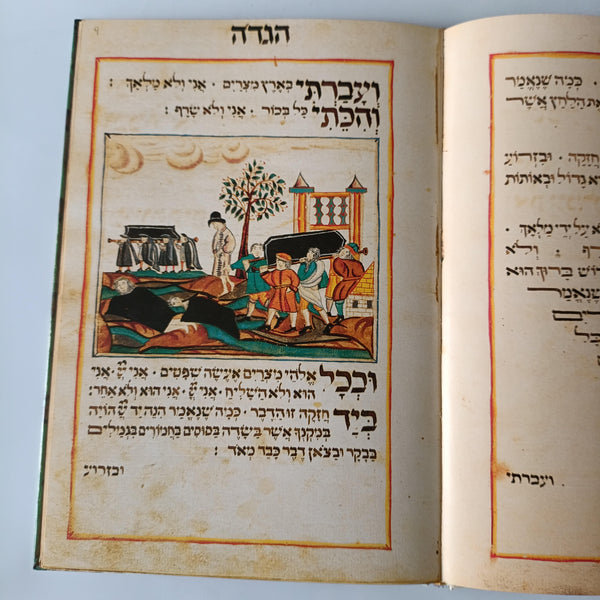 כמה שנאמר
הלחץ אשר
חזקה · ובזרוע
גדול ובאותות
על ידי מלאך ·
ולא
ברוך הוא
שנאמר
ועברתי
9
הגדה
ועברתי בארץ מצרים · אני ולא מלאך :
והכתי כל בכור · אני ולא שרף :
ובכל אלהי מצרים אעשה שפטים · אני יי · אני
הוא ולא השליח · אני יי · אני הוא ולא אחר:
ביד חזקה זו הדבר · כמה שנאמר הנה יד יי הויה
במקנך אשר בשדה בסוסים בחמורים בגמלים
בבקר ובצאן דבר כבד מאד :
ובזרוע